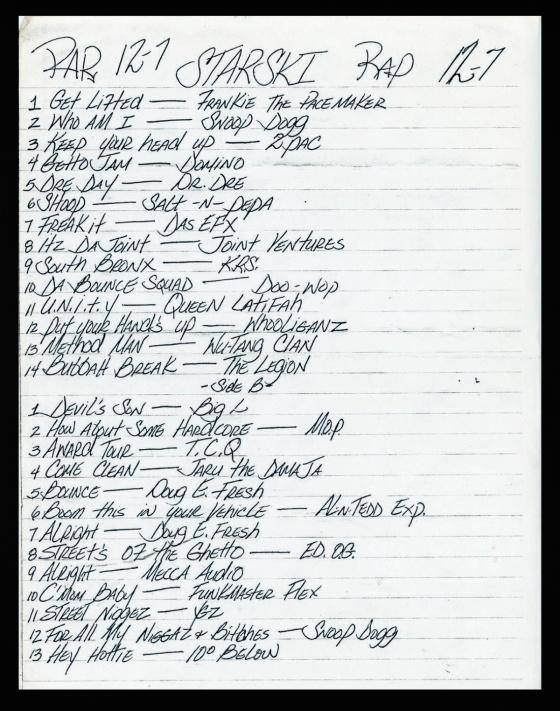 RAP 12-7 STARSKI RAP 12-7
1 GET LIFTED — FRANKIE THE PACEMAKER
2 WHO AM I — SNOOP DOGG
3 KEEP YOUR HEAD UP — 2PAC
4 GETTO JAM — DOMINO
5 DRE DAY — DR. DRE
6 SHOOP — SALT-N-PEPA
7 FREAKIT — DAS EFX
8 ITZ DA JOINT — JOINT VENTURES
9 SOUTH BRONX — K.R.S.
10 DA BOUNCE SQUAD — DOO-WOP
11 U.N.I.T.Y — QUEEN LATIFAH
12 PUT YOUR HANDS UP — WHOOLIGANZ
13 METHOD MAN — WU-TANG CLAN
14 BUDDAH BREAK — THE LEGION
-SIDE B-
1 DEVIL'S SON — BIG L
2 HOW ABOUT SOME HARDCORE — M.O.P.
3 AWARD TOUR — T.C.Q
4 COME CLEAN — JARU THE DAMAJA
5 BOUNCE — DOUG E. FRESH
6 BOOM THIS IN YOUR VEHICLE — ALN-TEDD EXP.
7 ALRIGHT — DOUG E. FRESH
8 STREETS OF THE GHETTO — ED. O.G.
9 ALRIGHT — MECCA AUDIO
10 C'MON BABY — FUNKMASTER FLEX
11 STREET NIGGEZ —
12 FOR ALL MY NIGGAZ & BITCHES — SNOOP DOGG
13 HEY HOTTIE — 10° BELOW